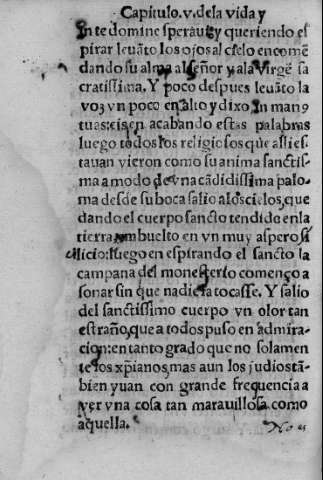 Capitulo.v.dela vida y
In te domine speraui:y queriendo el
pirar leuãto los ojos al cielo encomẽ
dando su alma al señor y a la Virgẽ sa
cratissima. Y poco despues leuãto la
voz vn poco en alto y dixo In man9
tuas: en acabando estas palabras
luego todos los religiosos que alli es
tauan vieron como su anima sanctis
ma a modo de vna cãdidissima palo
ma desde su boca salio a los cielos, que
dando el cuerpo sancto tendido en la
tierra embuelto en vn muy aspero si
licio: luego en espirando el sancto la
campana del monesterio començo a
sonar sin que nadie la tocasse. Y salio
del sanctissimo cuerpo vn olor tan
estraño, que a todos puso en admira-
cion: en tanto grado que no solamen
te los xp̃ianos, mas aun los judios tã-
bien yuan con grande frequencia a
ver vna cosa tan marauillosa como
aquella.